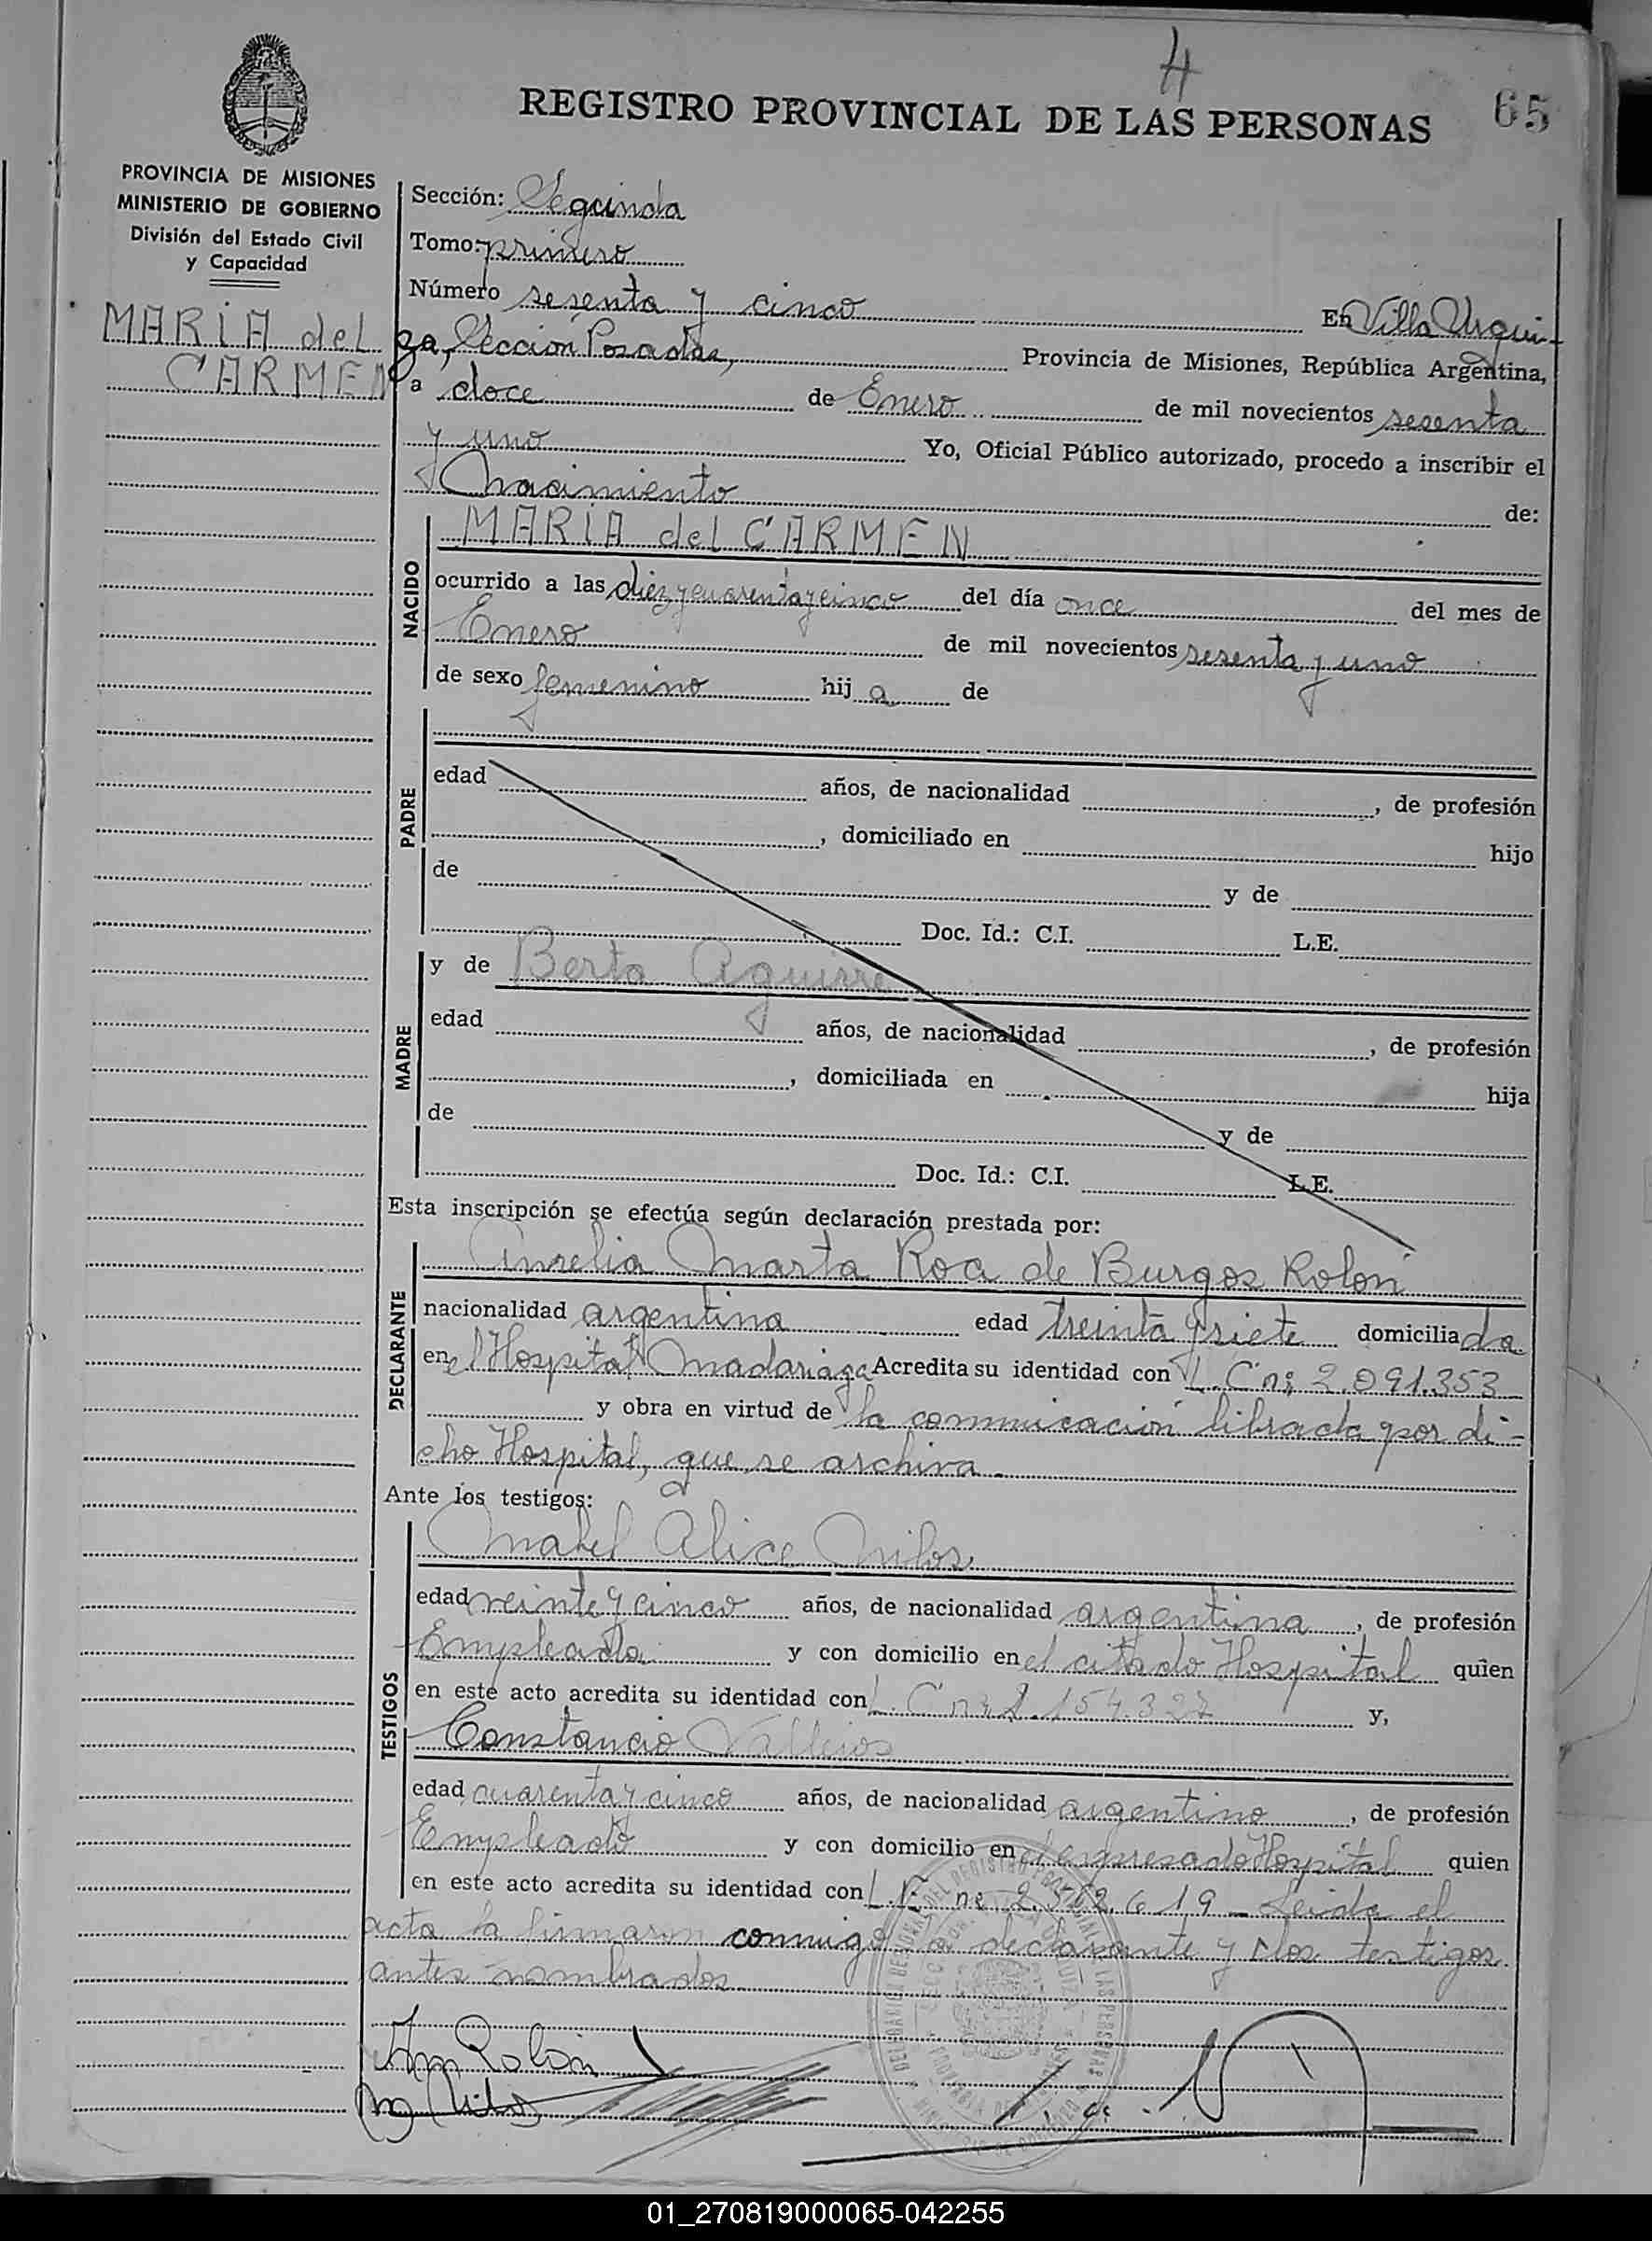 4
REGISTRO PROVINCIAL DE LAS PERSONAS
65
PROVINCIA DE MISIONES
MINISTERIO DE GOBIERNO
División del Estado Civil
y Capacidad
MARIA del
CARMEN
Sección: Segunda
Tomo: primero
Número sesenta y cinco En Villa Urqui-
za, Sección Posadas, Provincia de Misiones, República Argentina,
a doce de Enero de mil novecientos sesenta
y uno Yo, Oficial Público autorizado, procedo a inscribir el
Nacimiento de:
NACIDO
MARIA del CARMEN
ocurrido a las diez y cuarenta y cinco del día once del mes de
Enero de mil novecientos sesenta y uno
de sexo femenino hij a de
PADRE
edad años, de nacionalidad , de profesión
, domiciliado en hijo
de y de
Doc. Id.: C.I. L.E.
MADRE
y de Berta Aguirre
edad años, de nacionalidad , de profesión
, domiciliada en hija
de y de
Doc. Id.: C.I. L.E.
Esta inscripción se efectúa según declaración prestada por:
DECLARANTE
Amelia Marta Roa de Burgos Rolón
nacionalidad argentina edad treinta y siete domiciliada
en el Hospital Madariaga Acredita su identidad con L. C nº 2.091.353
y obra en virtud de la comunicación librada por di-
cho Hospital, que se archiva.
Ante los testigos:
TESTIGOS
Mabel Alice Milos
edad veinte y cinco años, de nacionalidad argentina, de profesión
Empleada y con domicilio en el citado Hospital quien
en este acto acredita su identidad con L. C nº 154.327 y,
Constancio Vallejos
edad cuarenta y cinco años, de nacionalidad argentino, de profesión
Empleado y con domicilio en el expresado Hospital quien
en este acto acredita su identidad con L. E nº 2.562.619 - Leída el
acta la firmaron conmigo la declarante y los testigos
antes nombrados
Am Rolón
01_270819000065-042255